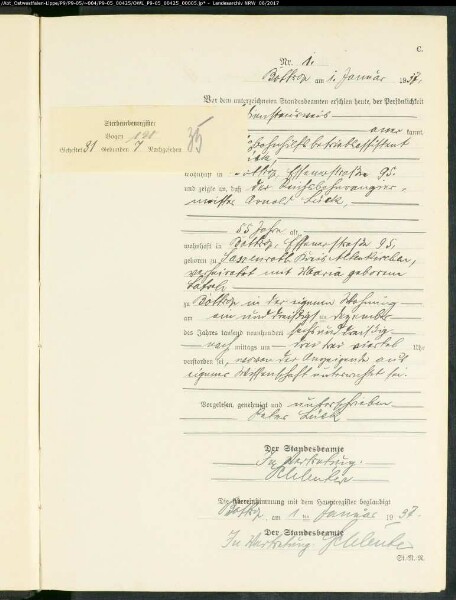 /Abt_Ostwestfalen-Lippe/P9/P9-05/~004/P9-05_00425/OWL_P9-05_00425_00005.jp* - Landesarchiv NRW 06/2017
C.
Nr. 1.
Bottrop am 1. Januar 1937.
Vor dem unterzeichneten Standesbeamten erschien heute, der Persönlichkeit
kannt,
Sterbenebenregister
Bogen 190
Geheftet 31 Gebunden 7 Nachgesehen
35
wohnhaft in Bottrop, Essenerstraße 95.
und zeigte an, daß der Reichsbahnrangier-
meister Arnold Lück
55 Jahre alt,
wohnhaft in Bottrop, Essenerstraße 95.
geboren zu Kreis Altenkirchen,
verheiratet mit Maria geborene
zu Bottrop in der eigenen Wohnung
am ein und dreißigsten Dezember
des Jahres tausend neunhundert sechs und dreißig
nach mittags um drei drei viertel Uhr
verstorben sei, wovon der Anzeigende aus
eigener Wissenschaft unterrichtet sei.
Vorgelesen, genehmigt und unterschrieben
Peter Lück
Der Standesbeamte
In Vertretung.
Die Übereinstimmung mit dem Hauptregister beglaubigt
Bottrop, am 1. Januar 1937.
Der Standesbeamte
In Vertretung.